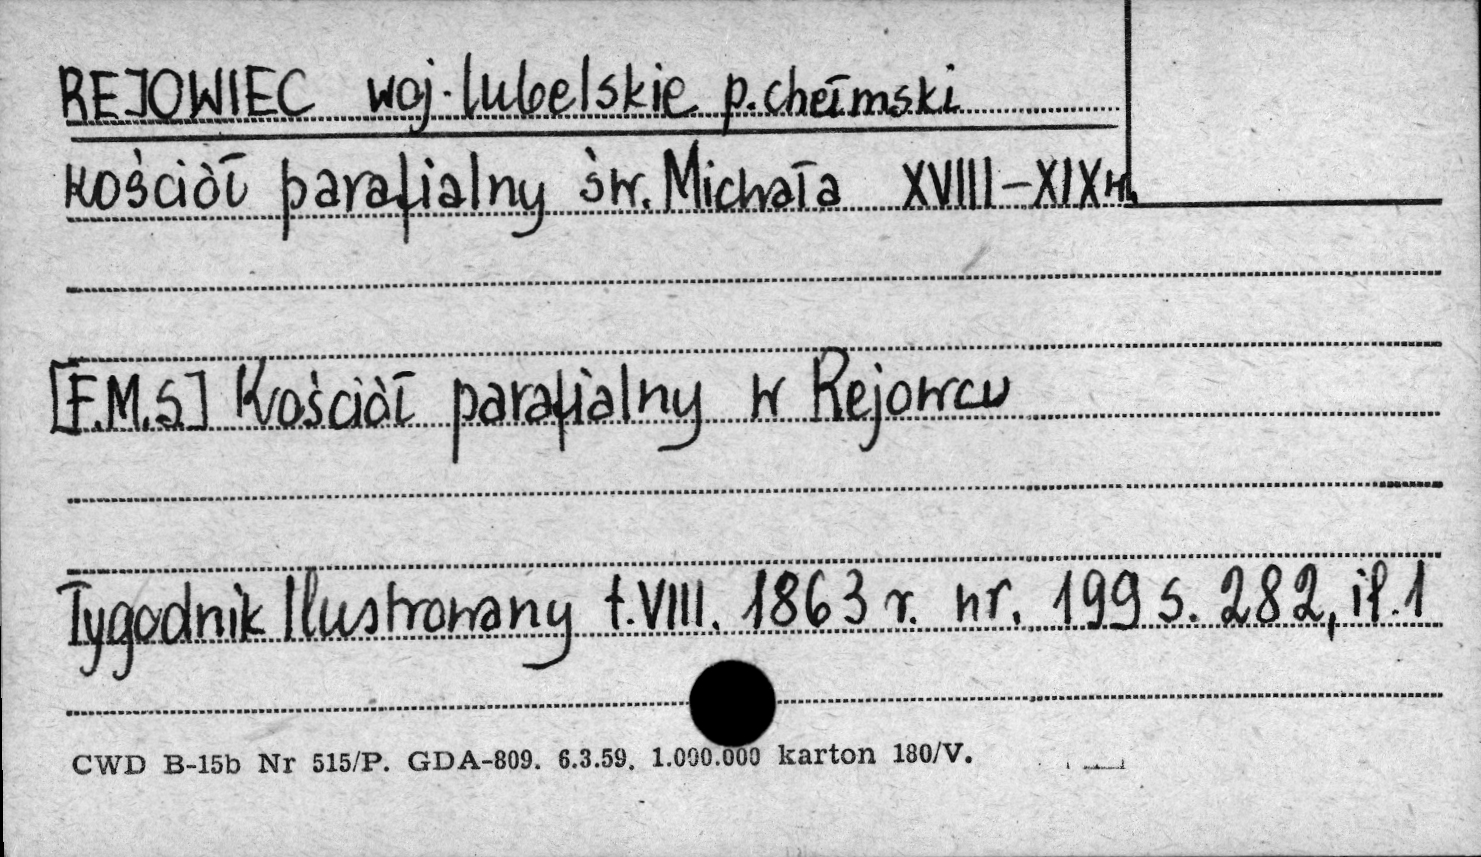 REJOWIEC woj. lubelskie p. chełmski
kościół parafialny św. Michała XVIII–XIX w.
[F.M.S.] Kościół parafialny w Rejowcu
Tygodnik Ilustrowany t. VIII. 1863 r. nr. 199 s. 282, il. 1
CWD B-15b Nr 515/P. GDA-809. 6.3.59. 1.000.000 karton 180/V.